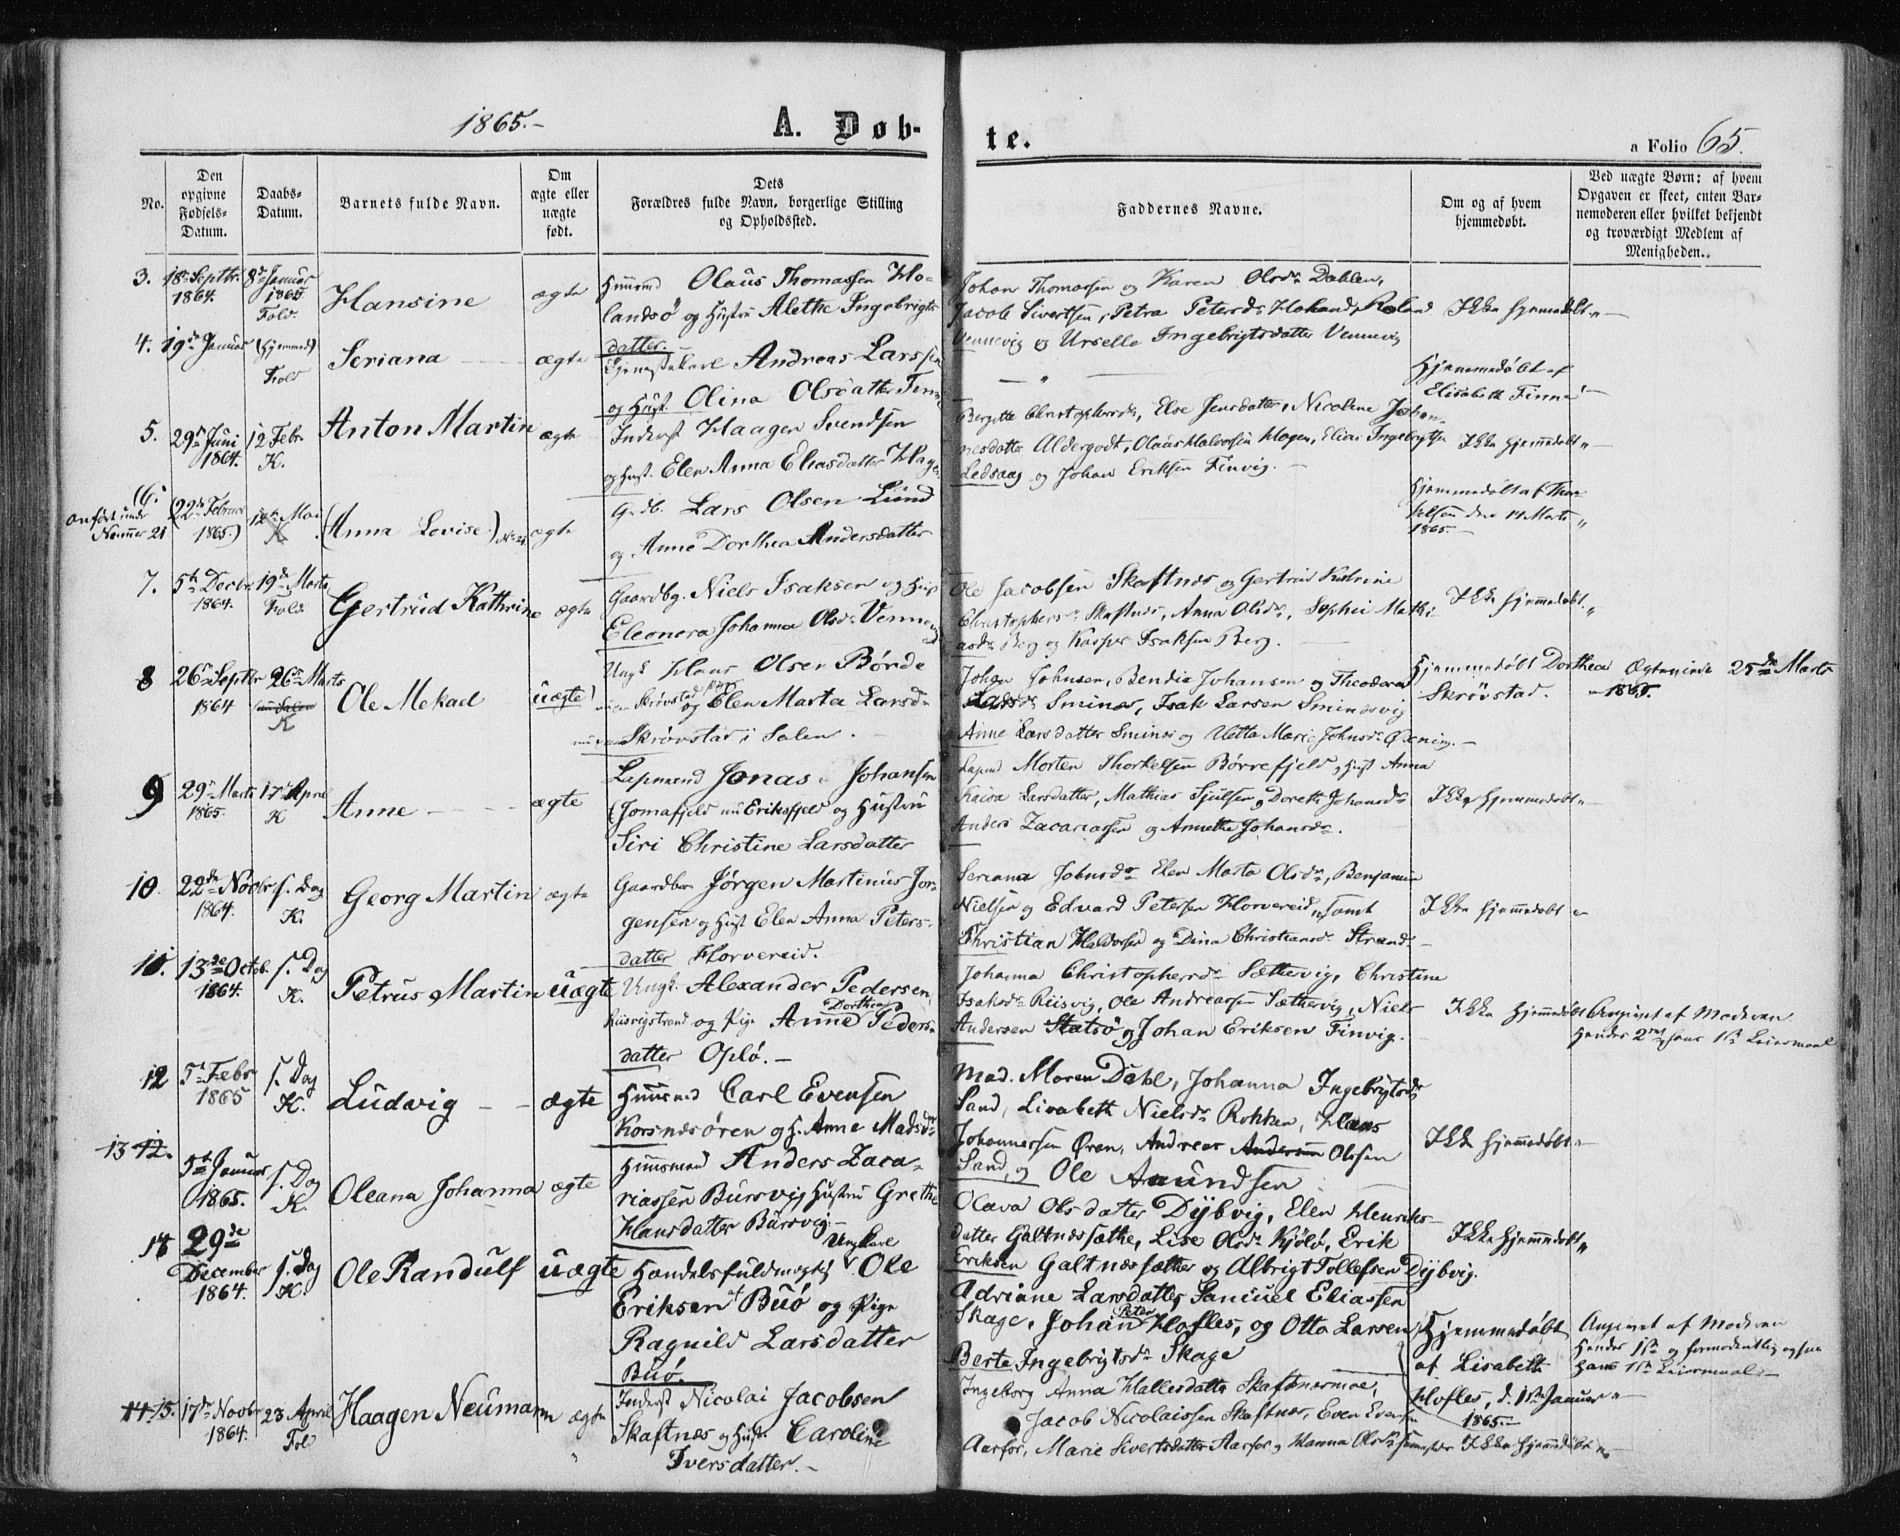 1865.-
A. Døb-
te.
a Folio 65.
No.
Den opgivne Fødsels-Datum.
Daabs-Datum.
Barnets fulde Navn.
Om ægte eller uægte født.
Dets Forældres fulde Navn, borgerlige Stilling og Opholdssted.
Faddernes Navne.
Om og af hvem hjemmedøbt.
Ved uægte Børn: af hvem Opgaven er skeet, enten Barnemoderen eller hvilket bekjendt og troværdigt Medlem af Menigheden.
3. 18de Septbr. 1864. 8de Januar 1865 Fold. Hansine ægte Huusmd Olaus Thomassen Ho-
landsö og Hustru Alethe Ingebrigts-
datter.
Johan Thomassen og Karen Olsdr Dahlen,
Jacob Sivertsen, Petra Petersdr
Vennevig og Urselle Ingebrigtsdatter Vennevig
Ikke hjemmedøbt
4. 19de Januar (Hjemmed) Fold Seriana ægte Tjenestekarl Andreas Larssen
og Hust. Olina Olsdatter
Hjemmedøbt af
Elisabeth Finne
5. 29de Juni 1864. 12 Febr K. Anton Martin ægte Inderst Haagen Svendsen
og Hust. Elen Anna Eliasdatter
Bergitte Christophersdr, Else Jensdatter, Nicoline Johan-
nesdatter Aldergodt, Olaus Halvorsen Hagen, Elias Ingebrigtsen
Ledsaag og Johan Eriksen Finvig.
Ikke hjemmedøbt
(6. anført under Nummer 21 (22de Februar 1865) 12te Mai K (Anna Lovise) No 21 ægte Grdb. Lars Olsen Lund
og Anne Dorthea Andersdatter
Hjemmedøbt af Thor-
kelsen den 14 Marts
1865.
7. 5te Decbr. 1864. 19de Marts Fold. Gertrud Kathrine ægte Gaardbg. Niels Isaksen og Hust
Eleonora Johanna Olsdr Vennevig
Ole Jacobsen Skaftnes og Gertrud Katrine
Christophersdr Skaftnes, Anna Olsdr, Sophie Mathi-
asdr Berg og Kasper Isaksen Berg.
Ikke hjemmedøbt
8 26de Septbr 1864 26de Marts K Ole Mekael uægte Ungk. Hans Olsen Börde
Skrövstad og Pige Elen Marta Larsdr
Skrövstad i Salen.
Johan Johnsen, Bendix Johansen og Theodora
Larsdr Sminæs, Isak Larsen Sminesvig
Anne Larsdatter Sminæs og Uetta Marie Johnsdr Öxning.
Hjemmedøbt Dorthea
Skrövstad.
25de Marts
1865.
9 29de Marts 1865. 17de April K Anne ægte Lapmand Jonas Johansen
(Jomafjeld nu Eriksfjeld og Hustru
Siri Christine Larsdatter
Lapmd Morten Thorkelsen Börrefjeld, Hust Anna
Kaisa Larsdatter, Mathias Sjulsen, Doreth Johansdr
Anders Zacariassen og Annethe Johansdr.
Ikke hjemmedøbt
10. 22de Novbr 1864. s. Dag K. Georg Martin ægte Gaardbr Jörgen Martinus Jör-
gensen og Hust Elen Anna Peters-
datter Horvereid.
Seriana Johnsdr Elen Marta Olsdr, Benjamin
Nielsen og Edvard Petersen Horvereid, samt
Christian Haldorsen og Dina Christiansdr Strand
Ikke hjemmedøbt
11. 13de Octob. 1864. s. Dag K. Petrus Martin uægte Ungk. Alexander Pedersen,
Riisvigstrand og Pige Anne Dorthea Peders-
datter Oplö.
Johanna Christophersdr Sættervig, Christine
Isaksdr Riisvig, Ole Andreassen Sættervig, Niels
Andersen Statsö og Johan Eriksen Finvig.
Ikke hjemmedøbt
Angivet af Moderen
Hendes 2det, hans 1ste Leiermaal
12 5te Febr 1865 s. Dag K. Ludvig ægte Huusmd Carl Evensen
Korsnesören og H. Anne Madsdr
Mad. Maren Dahl, Johanna Ingebrigtsdr
Sand, Lisabeth Nielsdr Rokken, Hans
Johannessen Ören, Andreas Andersen Olsen
Sand, og Ole Amundsen
Ikke hjemmedøbt
13 12. 5te Januar 1865. s. Dag K. Oleana Johanna ægte Huusmand Anders Zaca-
riassen Bursvig, Hustru Grethe
Hansdatter Bursvig.
Olava Olsdatter Dybvig, Elen Henriks-
datter Galtnessæther, Lise Olsdr Kjölö, Erik
Eriksen Galtnessæther og Albrigt Tollefsen Dybvig.
Ikke hjemmedøbt
14 29de December 1864. s. Dag K. Ole Randulf uægte Handelsfuldmægtig Ungkarl Ole
Eriksen af Buö og Pige
Ragnild Larsdatter
Buö.
Adriane Larsdatter, Samuel Eliassen
Skage, Johan Peter Hofles, og Otto Larsen
Berte Ingebrigtsdr Skage
Hjemmedøbt
af Lisabeth
Hofles, d. 1ste Januar
1865.
Angivet af Moderen
Hendes 1ste og formodentlig ogsaa
hans 1ste Leiermaal.
14 15. 17de Novbr 1864. 23 April Fold Haagen Neumann ægte Inderst Nicolai Jacobsen
Skaftnes og Hust. Caroline
Iversdatter.
Ingeborg Anna Hallesdatter Skaftnesmoe,
Jacob Nicolaissen Skaftnes, Even Evensen
Aarfor, Marie Sivertsdatter Aarfor og Hanna Olsdr
Ikke hjemmedøbt